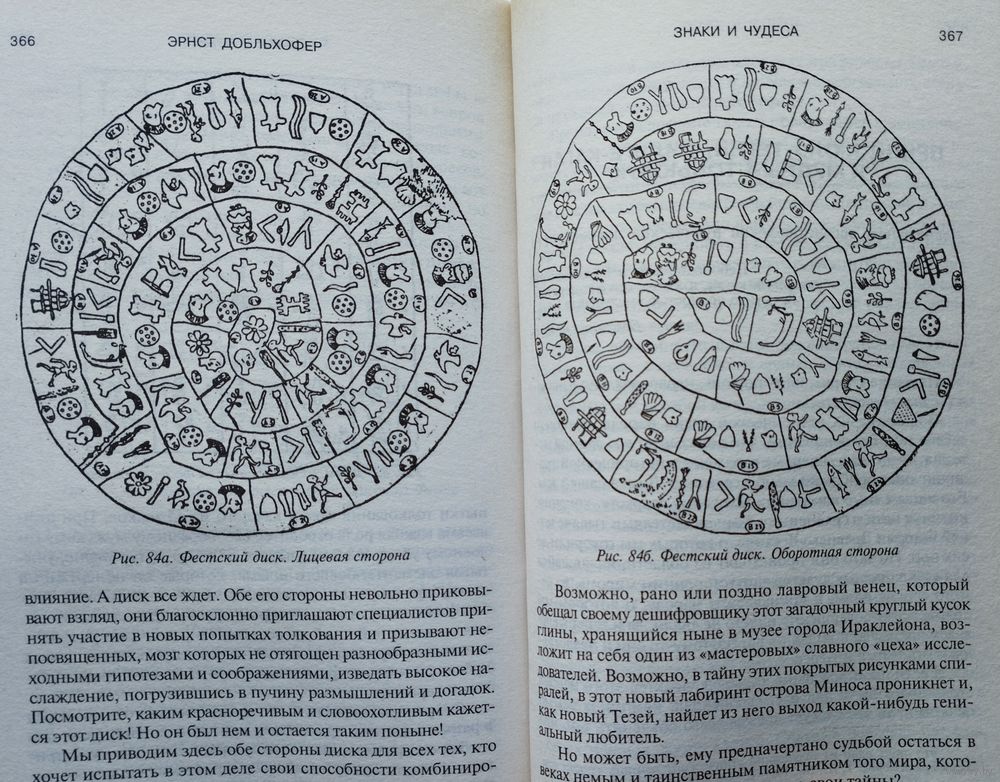 366
ЭРНСТ ДОБЛЬХОФЕР
Рис. 84а. Фестский диск. Лицевая сторона
влияние. А диск все ждет. Обе его стороны невольно приковы-
вают взгляд, они благосклонно приглашают специалистов при-
нять участие в новых попытках толкования и призывают не-
посвященных, мозг которых не отягощен разнообразными ис-
ходными гипотезами и соображениями, изведать высокое на-
слаждение, погрузившись в пучину размышлений и догадок.
Посмотрите, каким красноречивым и словоохотливым кажет-
ся этот диск! Но он был нем и остается таким поныне!
Мы приводим здесь обе стороны диска для всех тех, кто
хочет испытать в этом деле свои способности комбиниро-
ЗНАКИ И ЧУДЕСА
367
Рис. 84б. Фестский диск. Оборотная сторона
Возможно, рано или поздно лавровый венец, который
обещал своему дешифровщику этот загадочный круглый кусок
глины, хранящийся ныне в музее города Ираклейона, воз-
ложит на себя один из «мастеровых» славного «цеха» иссле-
дователей. Возможно, в тайну этих покрытых рисунками спи-
ралей, в этот новый лабиринт острова Миноса проникнет и,
как новый Тезей, найдет из него выход какой-нибудь гени-
альный любитель.
Но может быть, ему предначертано судьбой остаться в
веках немым и таинственным памятником того мира, кото-
свои тайны?